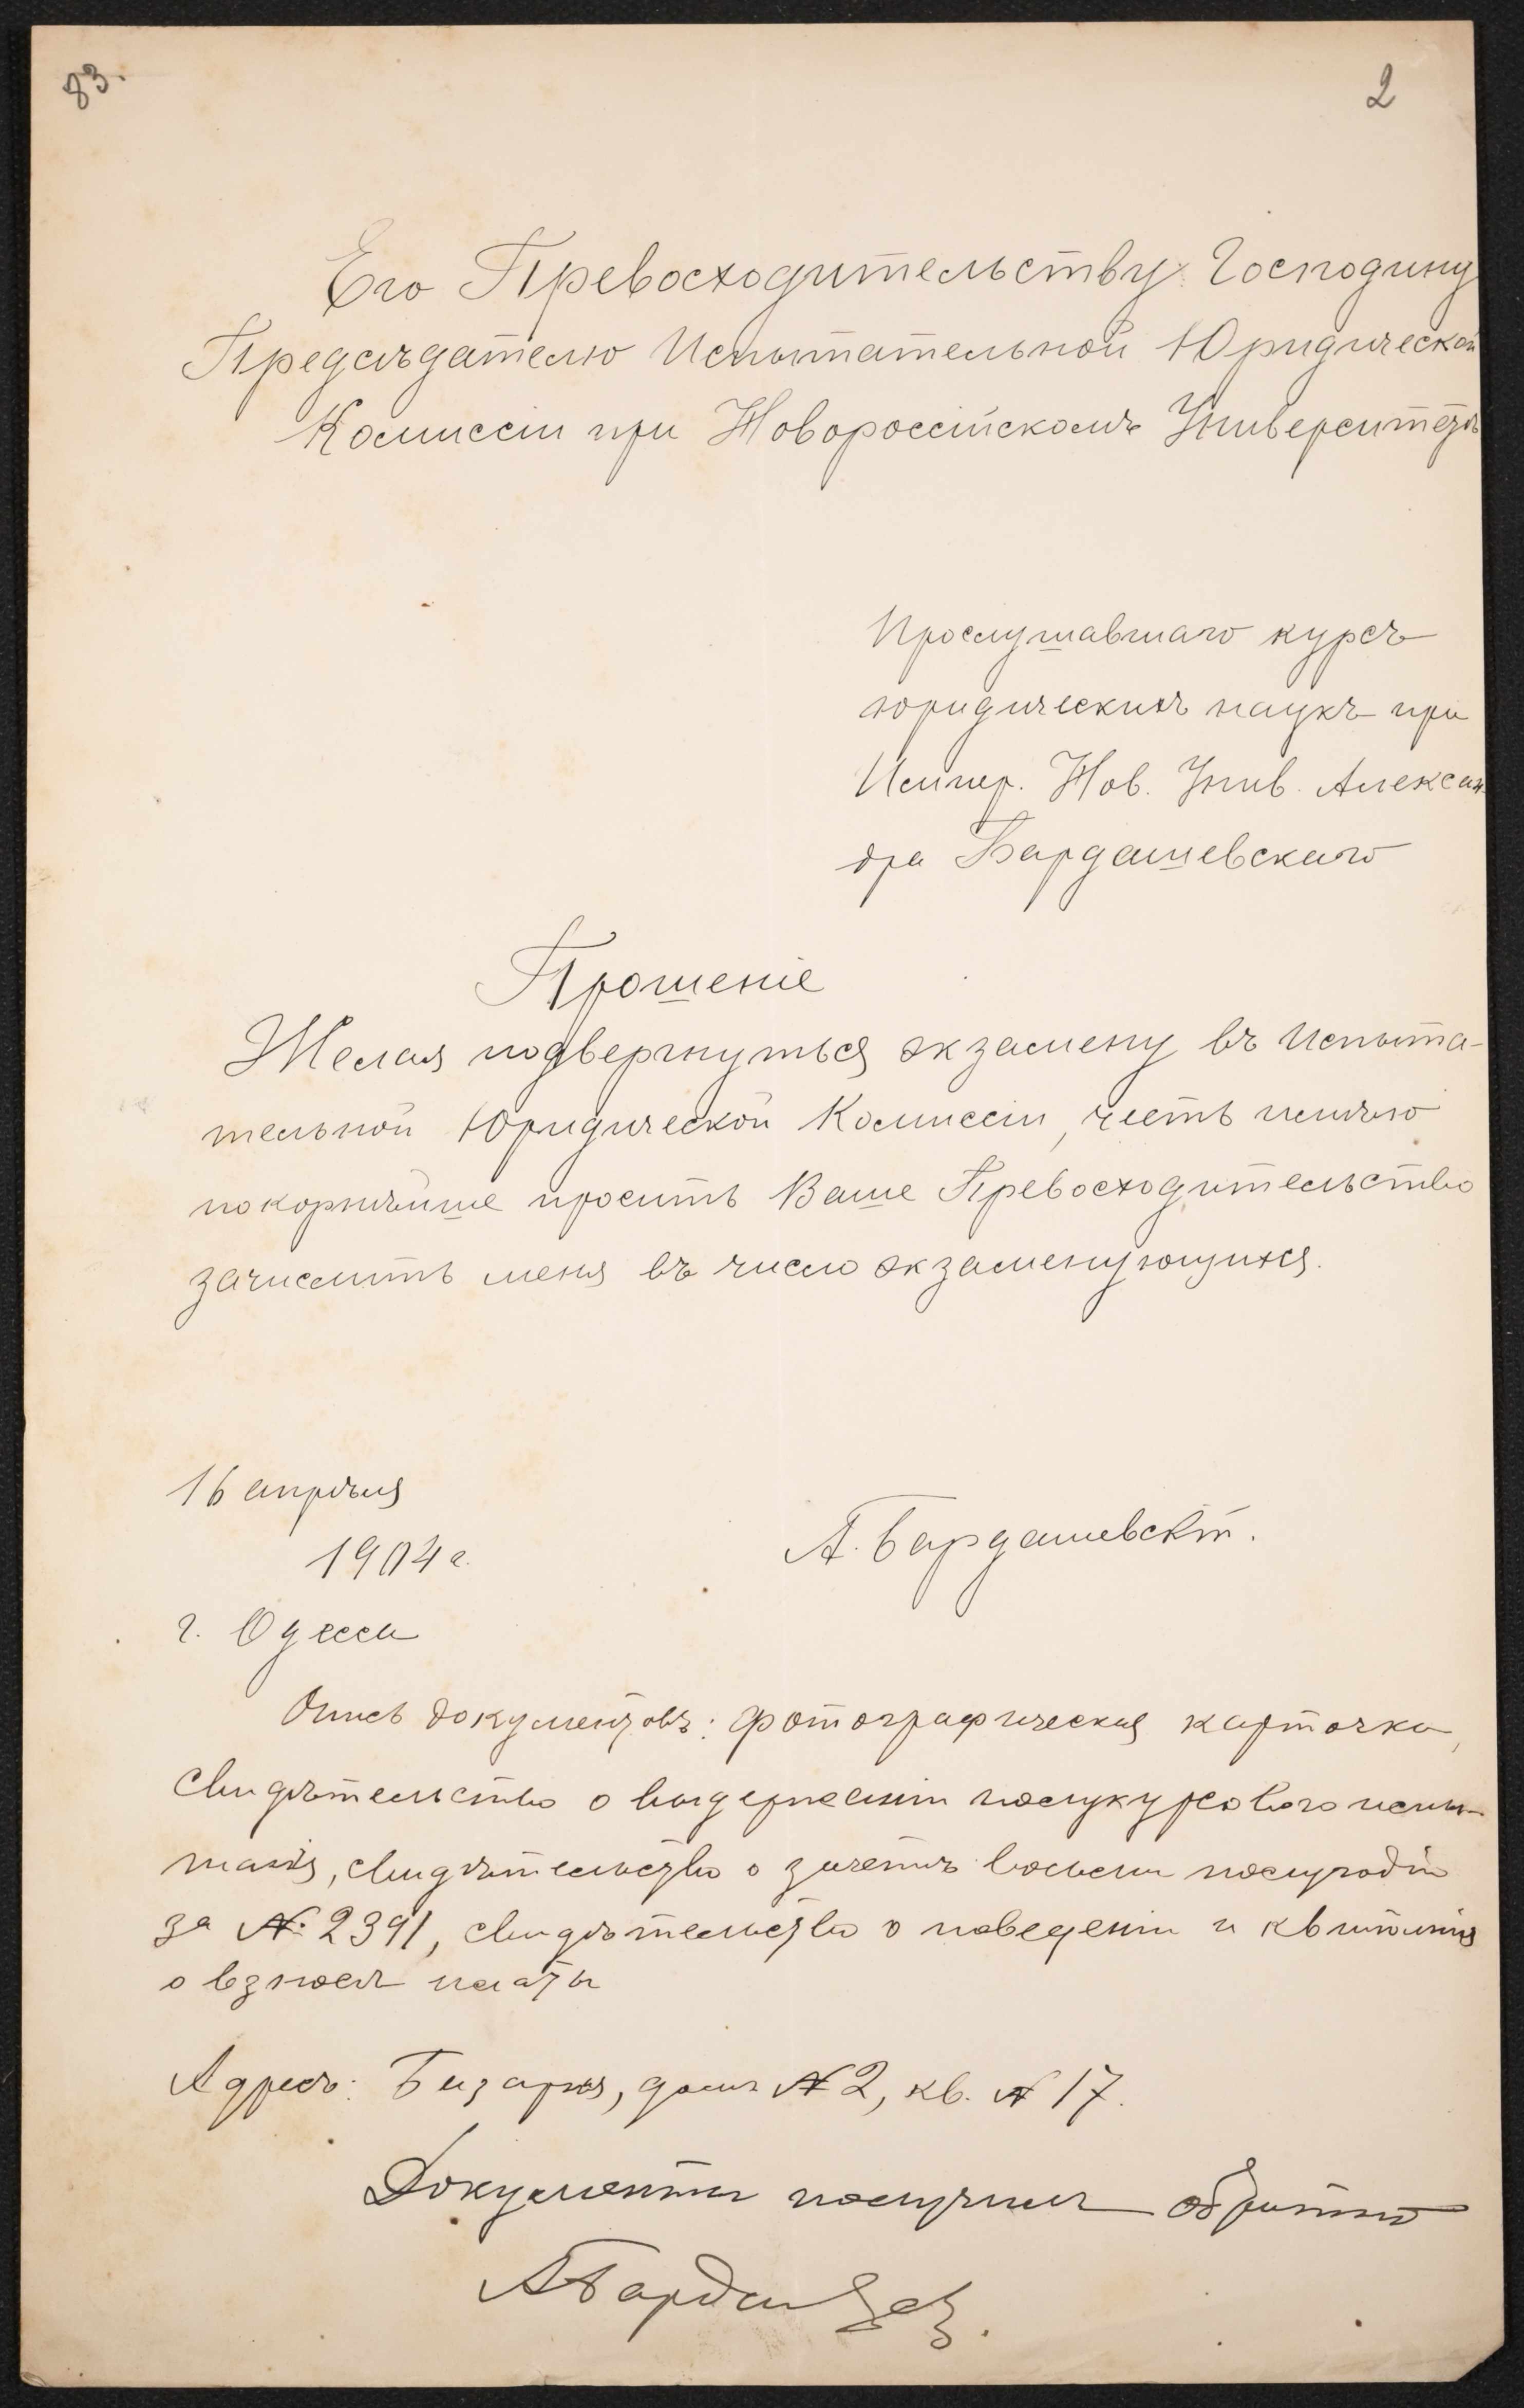 83.
2
Его Превосходительству Господину
Предсѣдателю Испытательной Юридической
Комиссіи при Новороссійскомъ Университетѣ
Прослушавшаго курсъ
юридическихъ наукъ при
Импер. Нов. Унив. Алексан-
дра Бардашевскаго
Прошеніе
Желая подвергнуться экзамену въ Испыта-
тельной Юридической Комиссіи, честь имѣю
покорнѣйше просить Ваше Превосходительство
зачислить меня въ число экзаменующихся.
16 апрѣля
1904 г.
А. Бардашевскій.
г. Одесса
Опись документовъ: фотографическая карточка,
свидѣтельство о выдержаніи полукурсового испы-
танія, свидѣтельство о зачетѣ восьми полугодій
за № 2391, свидѣтельство о поведеніи и квитанція
о взносѣ платы
Адресъ: Базарная, домъ № 2, кв. № 17.
Документы получилъ обратно